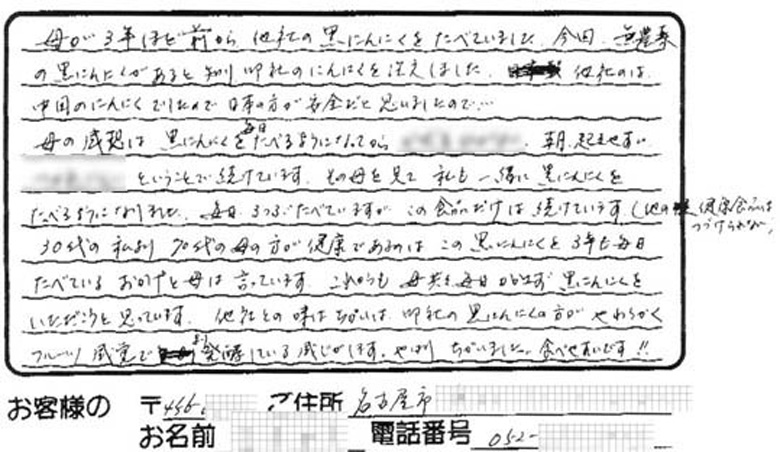 母が3年ほど前から他社の黒にんにくをたべていました。今回、無農薬
の黒にんにくがあると知り御社のにんにくを注文しました。他社のは
中国のにんにくでしたので日本の方が安全だと思いましたので…
母の感想は黒にんにくを毎日たべるようになってから 、朝、起きやすい
ということで続けています。その母を見て私も一緒に黒にんにくを
たべるようになりました。毎日3つぶたべていますがこの食品だけは続けています(他の健康食品はつづけられない)
30代の私より70代の母の方が健康であるのはこの黒にんにくを3年も毎日
たべているおかげと母は言っています。これからも母共々毎日かかさず黒にんにくを
いただこうと思っています。他社との味はちがいは御社の黒にんにくの方がやわらかく
フルーツ感覚でより発酵している感じがします。やはりちがいました。食べやすいです!!
お客様の 〒456- ご住所 名古屋市
お名前 電話番号 052-